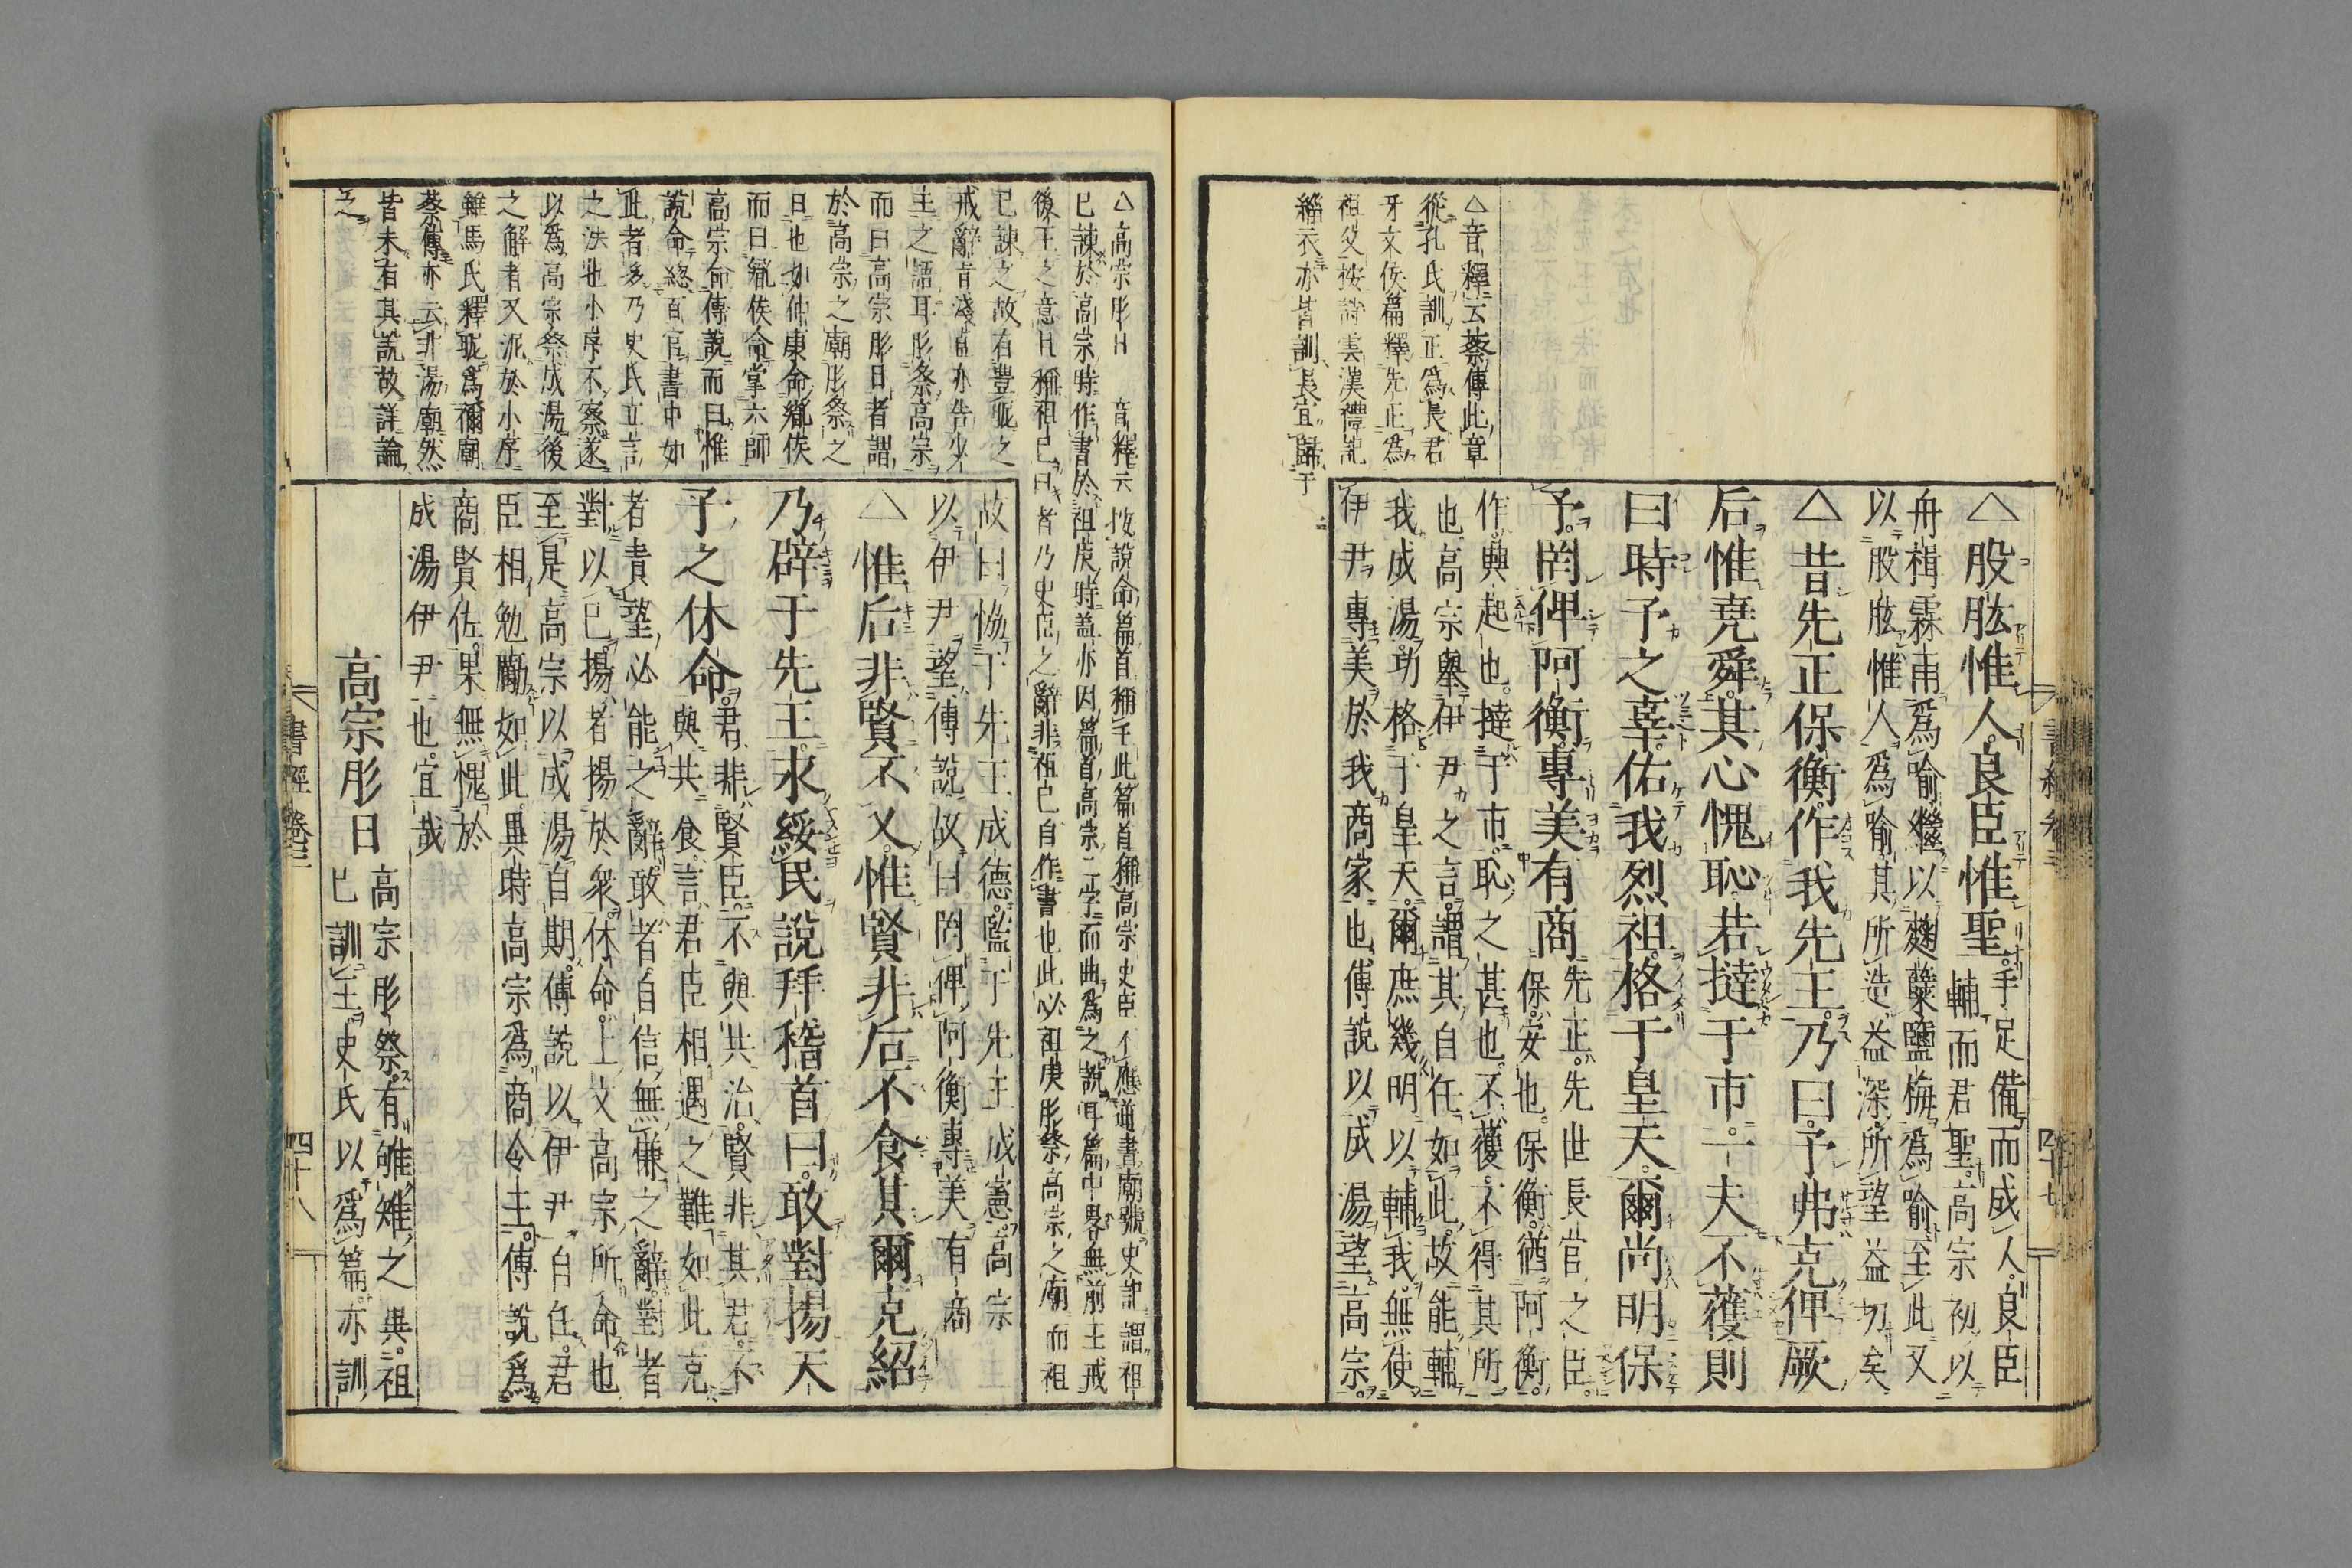 △股肱惟人良臣惟聖手足備而成人良臣
輔而君聖高宗初以
舟楫霖雨爲喩繼以麴糱鹽梅爲喩至此又
以股肱惟人爲喩其所造益深所望益切矣
△昔先正保衡作我先王乃曰予弗克俾厥
后惟堯舜其心愧恥若撻于市一夫不獲則
曰時予之辜佑我烈祖格于皇天爾尚明保
予罔俾阿衡專美有商
先正先世長官之臣
保安也保衡猶阿衡
作興起也撻于市恥之甚也不獲不得其所
也高宗舉伊尹之言謂其自任如此故能輔
我成湯功格于皇天爾庶幾明以輔我無使
伊尹專美於我商家也傳說以成湯望高宗
△音釋云蔡傳此章
從孔氏訓正爲長君
牙文侯篇釋先正爲
祖父按詩雲漢禮記
緇衣亦皆訓長宜歸于
一
書經卷三
四十七
△高宗肜日 音釋云按說命篇首稱王此篇首稱高宗史臣
已諫於高宗時作書於祖庚時蓋亦因篇首高宗二字而曲爲之說耳篇中畧無前王戒
後王之意且稱祖己曰者乃史臣之辭非祖己自作書也此必祖庚肜祭高宗之廟而祖
已諫之故有豐昵之
戒辭旨淺直亦告少
主之語耳肜祭高宗
而曰高宗肜日者謂
於高宗之廟肜祭之
日也如仲康命胤侯
而曰胤侯命掌六師
高宗命傳說而曰惟
說命總百官書中如
此者多乃史氏立言
之法也小序不察遂
以爲高宗祭成湯後
之解者又泥於小序
雖馬氏釋昵爲禰廟
蔡傳亦云非湯廟然
皆未有其說故詳論
之
故曰協于先王成德監于先王成憲高宗
以伊尹望傳說故曰罔俾阿衡專美有商
△惟后非賢不乂惟賢非后不食其爾克紹
乃辟于先王永綏民說拜稽首曰敢對揚天
子之休命
君非賢臣不與共治賢非其君不
與共食言君臣相遇之難如此克
者責望必能之辭敢者自信無慊之辭對者
對以己揚者揚於衆休命上文高宗所命也
至是高宗以成湯自期傳說以伊尹自任君
臣相勉勵如此異時高宗爲商令王傳說爲
商賢佐果無愧於
成湯伊尹也宜哉
高宗肜日
高宗肜祭有雊雉之異祖
己訓王史氏以爲篇亦訓
書經卷三
四十八